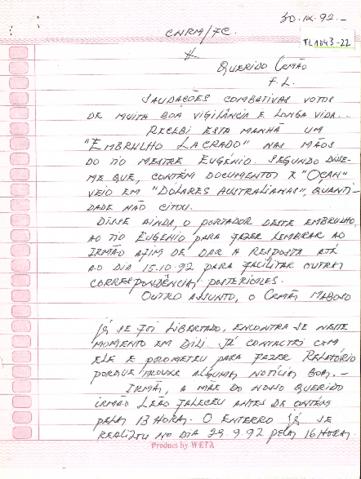 30.IX.92-
CNRM/FC.
TL1043-22
QUERIDO IRMÃO
F.L.
SAUDAÇÕES COMBATIVAS VOTOS
DE MUITA BOA VIGILÂNCIA E LONGA VIDA..
RECEBI ESTA MANHÃ UM
"EMBRULHO LACRADO" NAS MÃOS
DO TIO MESTRE EUGÉNIO. SEGUNDO DISSE-
ME QUE, CONTÉM DOCUMENTOS E "OÇAN"
VEIO EM "DOLARES AUSTRALIANAS", QUANTI-
DADE NÃO CITOU.
DISSE AINDA, O PORTADOR DESTE EMBRULHO,
AO TIO EUGENIO PARA FAZER LEMBRAR AO
IRMÃO AFIM DE DAR A RESPOSTA ATÉ
AO DIA 15.10.92 PARA FACILITAR OUTRAS
CORRESPONDÊNCIAS POSTERIORES.
OUTRO ASSUNTO, O IRMÃO
JÁ SE FOI LIBERTADO, ENCONTRA SE NESTE
MOMENTO EM DILI. JÁ CONTACTEI COM
ELE E PROMETEU PARA FAZER RELATÓRIO
PORQUE TROUXE ALGUMAS NOTÍCIAS BOAS.-
IRMÃO, A MÃE DO NOSSO QUERIDO
IRMÃO LEÃO FALECEU ANTES DE ONTEM
PELAS 13 HORAS. O ENTERRO JÁ SE
REALIZOU NO DIA 29.9.92 PELAS 16 HORAS.
Product by WETA